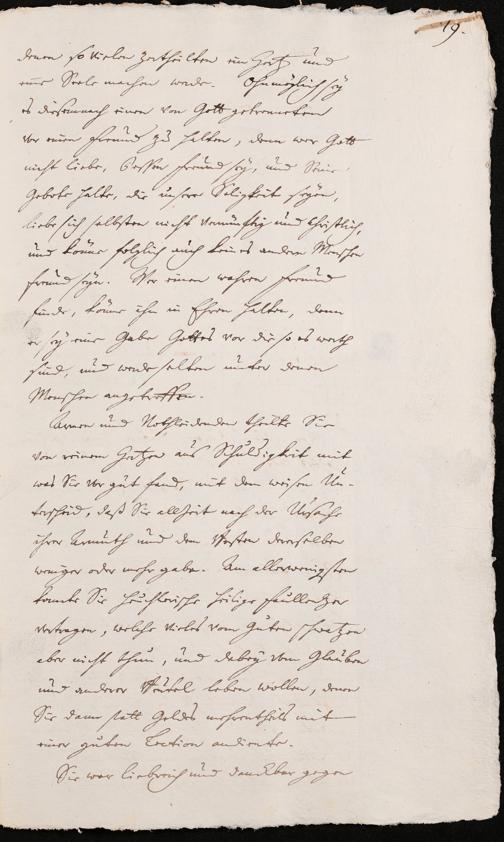 19.
denen so vielen zertheilten ein Hertz und
eine Seele machen werde. Ohnmöglich sey
es diesemnach einen von Gott getrenneten
vor einen Freund zu halten, denn wer Gott
nicht liebe, dessen Freund sey, und Seine
Gebote halte, die unsere Seligkeit seyen,
liebe sich selbsten nicht vernünftig und Christlich,
und könne folglich auch keines andern Menschen
Freund seyn. Wer einen wahren Freund
finde, könne ihn in Ehren halten, denn
er sey eine Gabe Gottes vor die so es werth
sind, und werde selten unter denen
Menschen angetroffen.
Armen und Nothleidenden theilte Sie
von reinem Hertzen aus Schuldigkeit mit
was Sie vor gut fand, mit dem weisen Un-
terscheid, daß Sie allzeit nach der Ursache
ihrer Armuth und dem derselben
weniger oder mehr gabe. Am allerwenigsten
konnte Sie heuchlerische heilige Faullentzer
vertragen, welche vieles vom Guten schwatzen
aber nicht thun, und dabey vom Glauben
und anderer Beutel leben wollen, denen
Sie dann statt Geldes mehrentheils mit
einer guten Lection andiente.
Sie war liebreich und danckbar gegen